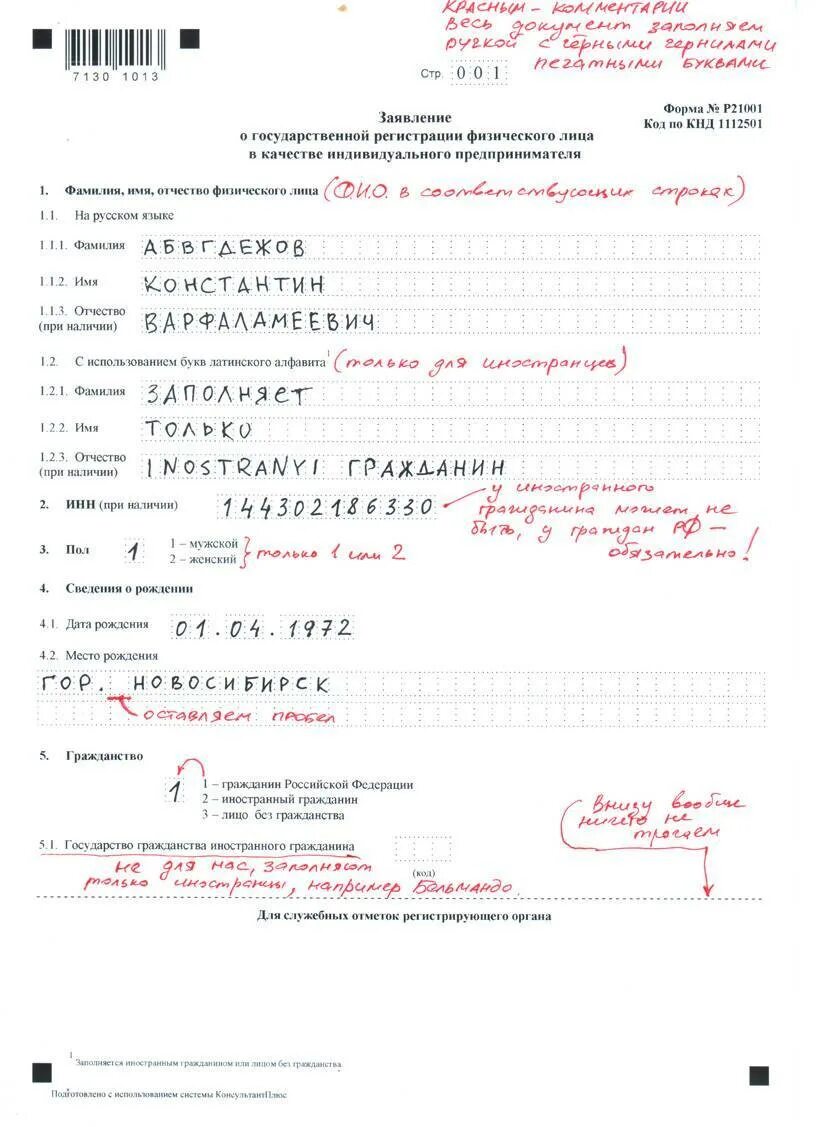 КРАСНЫМ - КОММЕНТАРИИ
ВЕСЬ документ заполняем
ручкой с чёрными чернилами
печатными буквами
7130 1013
Стр. 001
Форма № Р21001
Код по КНД 1112501
Заявление
о государственной регистрации физического лица
в качестве индивидуального предпринимателя
1. Фамилия, имя, отчество физического лица (Ф.И.О. в соответствующих строках)
1.1. На русском языке
1.1.1. Фамилия АБВГДЕЖОВ
1.1.2. Имя КОНСТАНТИН
1.1.3. Отчество
(при наличии) ВАРФАЛАМЕЕВИЧ
1.2. С использованием букв латинского алфавита1 (только для иностранцев)
1.2.1. Фамилия ЗАПОЛНЯЕТ
1.2.2. Имя ТОЛЬКО
1.2.3. Отчество
(при наличии) INOSTRANYI ГРАЖДАНИН
2. ИНН (при наличии) 144302186330
у иностранного
гражданина может не
быть, у граждан РФ —
обязательно!
3. Пол 1 1 – мужской
2 – женский только 1 или 2
4. Сведения о рождении
4.1. Дата рождения 01.04.1972
4.2. Место рождения
ГОР. НОВОСИБИРСК
оставляем пробел
5. Гражданство
1 1 – гражданин Российской Федерации
2 – иностранный гражданин
3 – лицо без гражданства
Внизу вообще
ничего не
трогаем
5.1. Государство гражданства иностранного гражданина
(код)
не для нас, заполняют
только иностранцы, например Бельмандо.
Для служебных отметок регистрирующего органа
1 Заполняется иностранным гражданином или лицом без гражданства
Подготовлено с использованием системы КонсультантПлюс